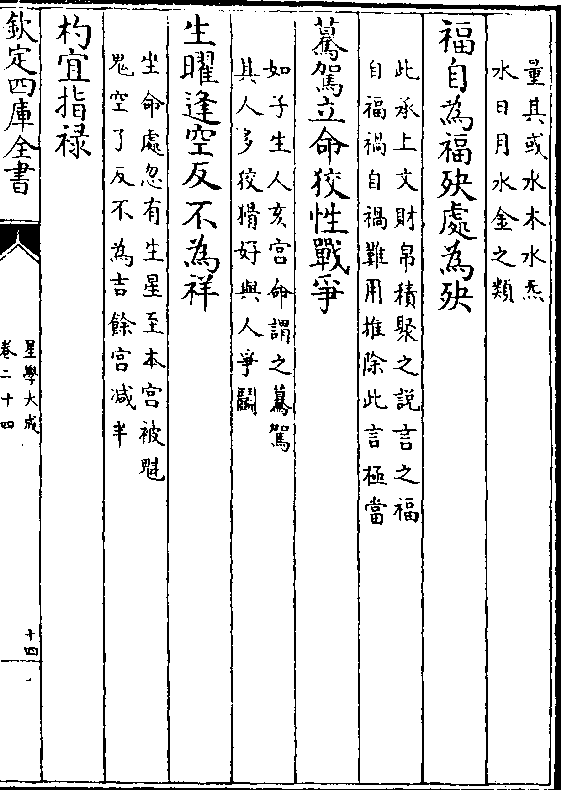 量其或水木水炁
水日月水金之類
福自為福殃處為殃
此承上文財帛積聚之說言之福
自福禍自禍難用推除此言極當
驀駕立命狡性戰爭
如子生人亥宮命謂之驀駕
其人多狡猾好與人爭鬭
生曜逢空反不為祥
坐命處忽有生星至本宮被魁
鬼空了反不為吉餘宮減半
杓宜指禄
欽定四庫全書
星學大成
卷二十四
十四